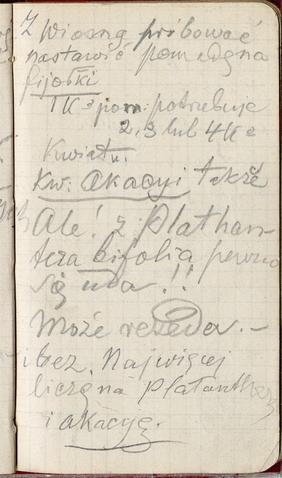 Z Wiosną próbować
nastawić pomadę na
fijołki
1 K pom: potrzebuje
2, 3 lub 4 K
Kwiatu.
Kw. Akacyi także
Ale! z Plathan-
tera bifolia pewno
się uda!!
Może rezeda. –
i bez. Najwięcej
liczę na Platanthera
i akacyę.